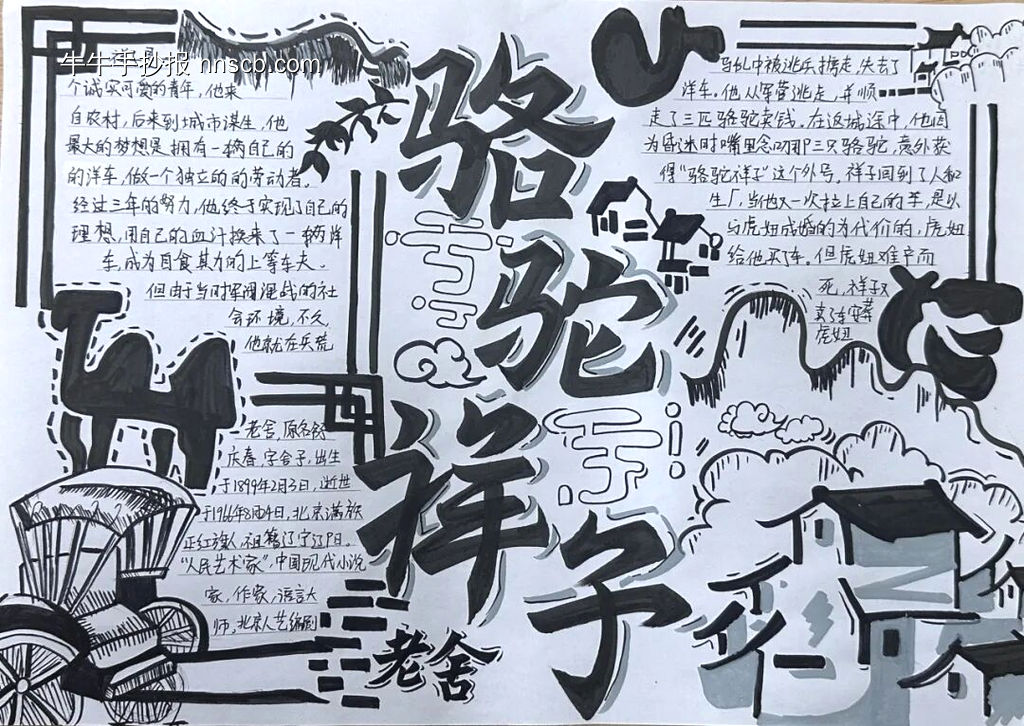 牛牛手抄报 nnscb.com
个诚实可爱的青年，他来
自农村，后来到城市谋生，他
最大的梦想是拥有一辆自己的
的洋车，做一个独立的的劳动者。
经过三年的努力，他终于实现了自己的
理想，用自己的血汗换来了一辆洋
车，成为自食其力的上等车夫。
但由于当时军阀混战的社
会环境，不久，
他就在兵荒
骆驼祥子
老舍
马乱中被逃兵掳走，失去了
洋车。他从军营逃走，并顺
走了三匹骆驼卖钱。在返城途中，他因
为昏迷时嘴里念叨三只骆驼，意外获
得“骆驼祥子”这个外号。祥子回到了人和
当他又一次拉上自己的车，是以
与虎妞成婚的为代价的，虎妞
给他买了车。但虎妞难产而
死，祥子又
卖了车安葬
虎妞
老舍，原名舒
庆春，字舍予，出生
于1899年2月3日，逝世
于1966年8月24日，北京满族
正红旗人，祖籍辽宁辽阳。
“人民艺术家”，中国现代小说
家，作家，语言大
师，北京人艺编剧